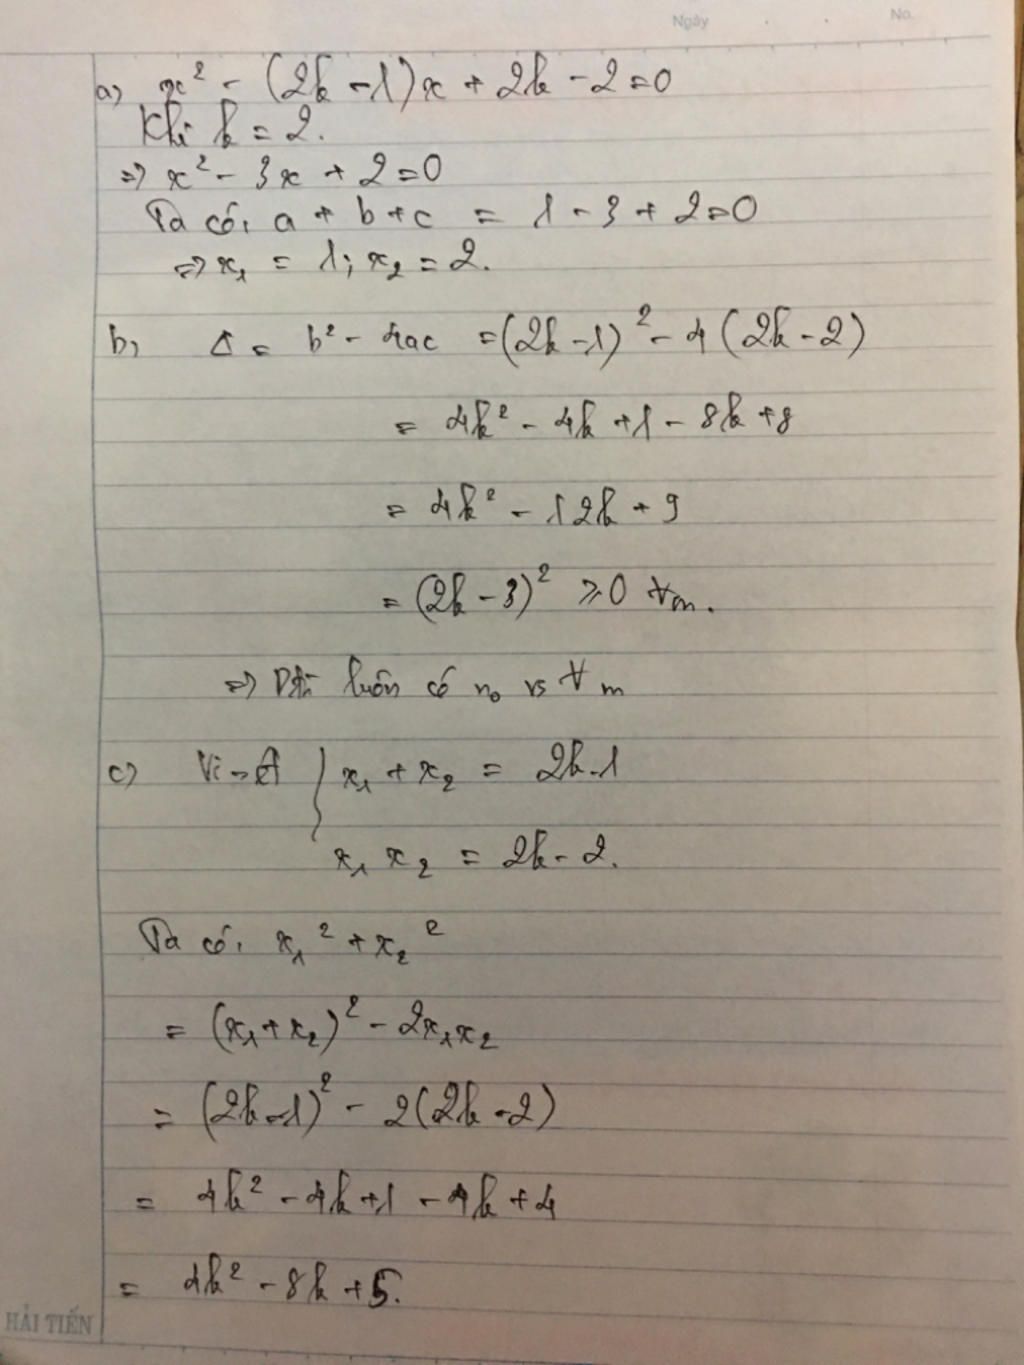 Ngày . . No.
a) x² - (2k - 1)x + 2k - 2 = 0
Khi k = 2.
=> x² - 3x + 2 = 0
Ta có, a + b + c = 1 - 3 + 2 = 0
=> x₁ = 1; x₂ = 2.
b, Δ = b² - 4ac = (2k - 1)² - 4(2k - 2)
= 4k² - 4k + 1 - 8k + 8
= 4k² - 12k + 9
= (2k - 3)² ≥ 0 ∀m.
=> luôn có n₀ vs ∀m
c) Vi-ét { x₁ + x₂ = 2k-1
x₁ x₂ = 2k - 2.
Ta có, x₁² + x₂²
= (x₁ + x₂)² - 2x₁x₂
= (2k - 1)² - 2(2k - 2)
= 4k² - 4k + 1 - 4k + 4
= 4k² - 8k + 5.
HẢI TIẾN